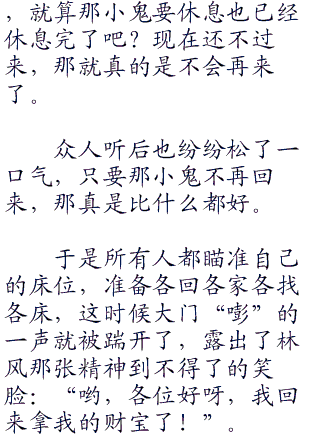 ，就算那小鬼要休息也已经
休息完了吧？现在还不过
来，那就真的是不会再来
了。
众人听后也纷纷松了一
口气，只要那小鬼不再回
来，那真是比什么都好。
于是所有人都瞄准自己
的床位，准备各回各家各找
各床，这时候大门“嘭”的
一声就被踹开了，露出了林
风那张精神到不得了的笑
脸：“哟，各位好呀，我回
来拿我的财宝了！”。